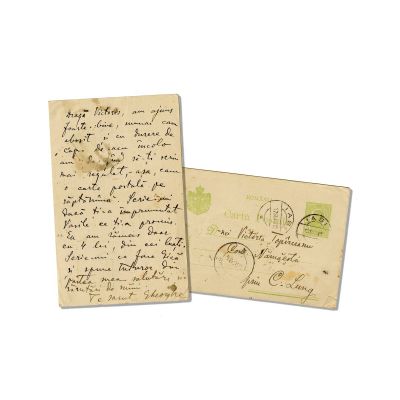 Dragă Victore, am ajuns
foarte bine, numai cam
obosit și cu durere de
cap. De acu încolo
am de să-ți scriu
mai regulat, așa, cam
o carte postală pe
săptămână. Scrie-mi
dacă ți-a împrumutat
Vasile ce ți-a promis.
Eu am rămas doar
cu 4 lei, din cei
Scrie-mi ce face Gică
și spune tuturor din
partea mea salutări și
sărutări de mâini.
Te sărut Gheorghe
ROMÂNIA
Carta
IAȘI
D-nei Victoria Topîrceanu
Com. Nămăești
prin C. Lung